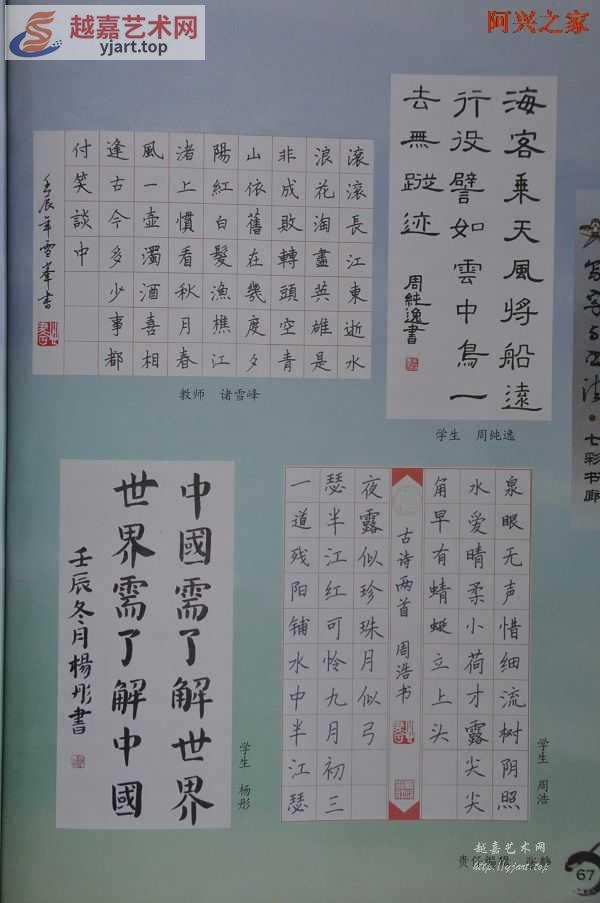 越嘉艺术网
yjart.top
阿兴之家
滚滚長江東逝水
浪花淘盡英雄是
非成敗轉頭空青
山依舊在幾度夕
陽紅白髮漁樵江
渚上慣看秋月春
風一壺濁酒喜相
逢古今多少事都
付笑談中
壬辰年雪峯書
教师 诸雪峰
海客乘天風將船遠
行役譬如雲中鳥一
去無蹤迹
周純逸書
学生 周纯逸
七彩书廊
中國需了解世界
世界需了解中國
壬辰冬月楊彤書
学生 杨彤
泉眼无声惜细流树阴照
水爱晴柔小荷才露尖尖
角早有蜻蜓立上头
古诗两首 周浩书
一道残阳铺水中半江瑟
瑟半江红可怜九月初三
夜露似珍珠月似弓
学生 周浩
责任编辑 张静
越嘉艺术网
http://yjart.top
67